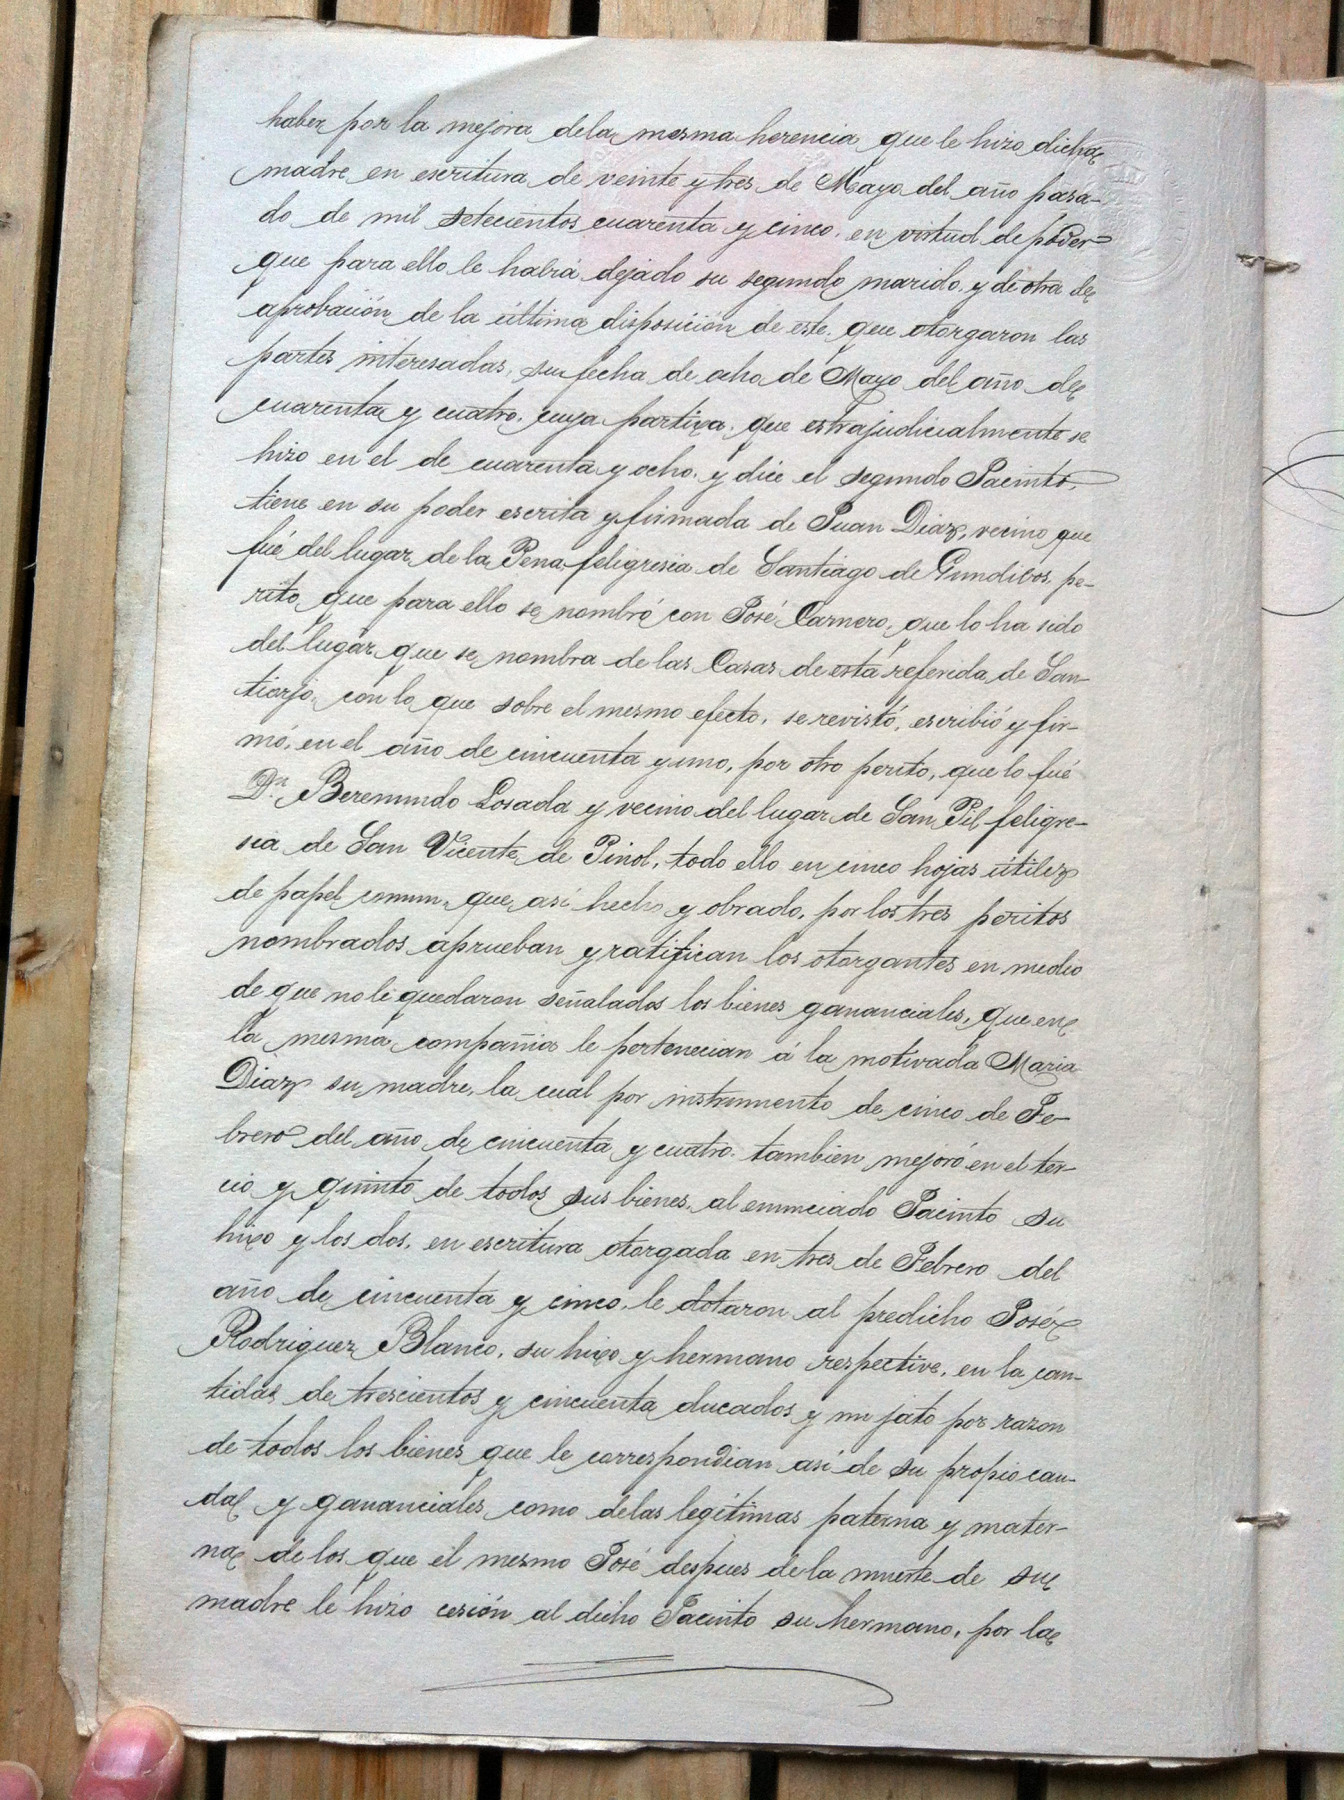 haber por la mejora dela mesma herencia que le hizo dicha
madre en escritura de veinte y tres de Mayo del año pasa-
do de mil setecientos cuarenta y cinco, en virtud de poder
que para ello le habia dejado su segundo marido, y de otra de
aprobación de la última disposición de este, que otorgaron las
partes interesadas, su fecha de ocho de Mayo del año de
cuarenta y cuatro, cuya partixa, que estrajudicialmente se
hizo en el de cuarenta y ocho, y dice el segundo Jacinto,
tiene en su poder escrita y firmada de Juan Diaz, vecino que
fué del lugar de la Pena feligresia de Santiago de Gundibos, pe-
rito que para ello se nombró con José Carnero, que lo ha sido
del lugar que se nombra de las Casas de esta referida de San-
tiorjo, con lo que sobre el mesmo efecto, se revistó, escribió y fir-
mó, en el año de cincuenta y uno, por otro perito, que lo fué
Dn. Beremundo Losada y vecino del lugar de San Gil feligre-
sia de San Vicente de Pinol, todo ello en cinco hojas útiles
de papel comun, que asi hecho y obrado, por los tres peritos
nombrados aprueban y ratifican los otorgantes en medio
de que no le quedaron señalados los bienes gananciales, que en
la mesma compañia le pertenecian á la motivada Maria
Diaz su madre, la cual por instrumento de cinco de Fe-
brero del año de cincuenta y cuatro, tambien mejoró en el ter-
cio y quinto de todos sus bienes, al enunciado Jacinto su
hixo y los dos, en escritura otorgada en tres de Febrero del
año de cincuenta y cinco, le dotaron al predicho José
Rodriguez Blanco, su hixo y hermano respective, en la can-
tidad de trescientos y cincuenta ducados y un jato por razon
de todos los bienes que le correspondian asi de su propio cau-
dal y gananciales como delas legítimas paterna y mater-
na, de los que el mesmo José despues de la muerte de su
madre le hizo cesión al dicho Jacinto su hermano, por la